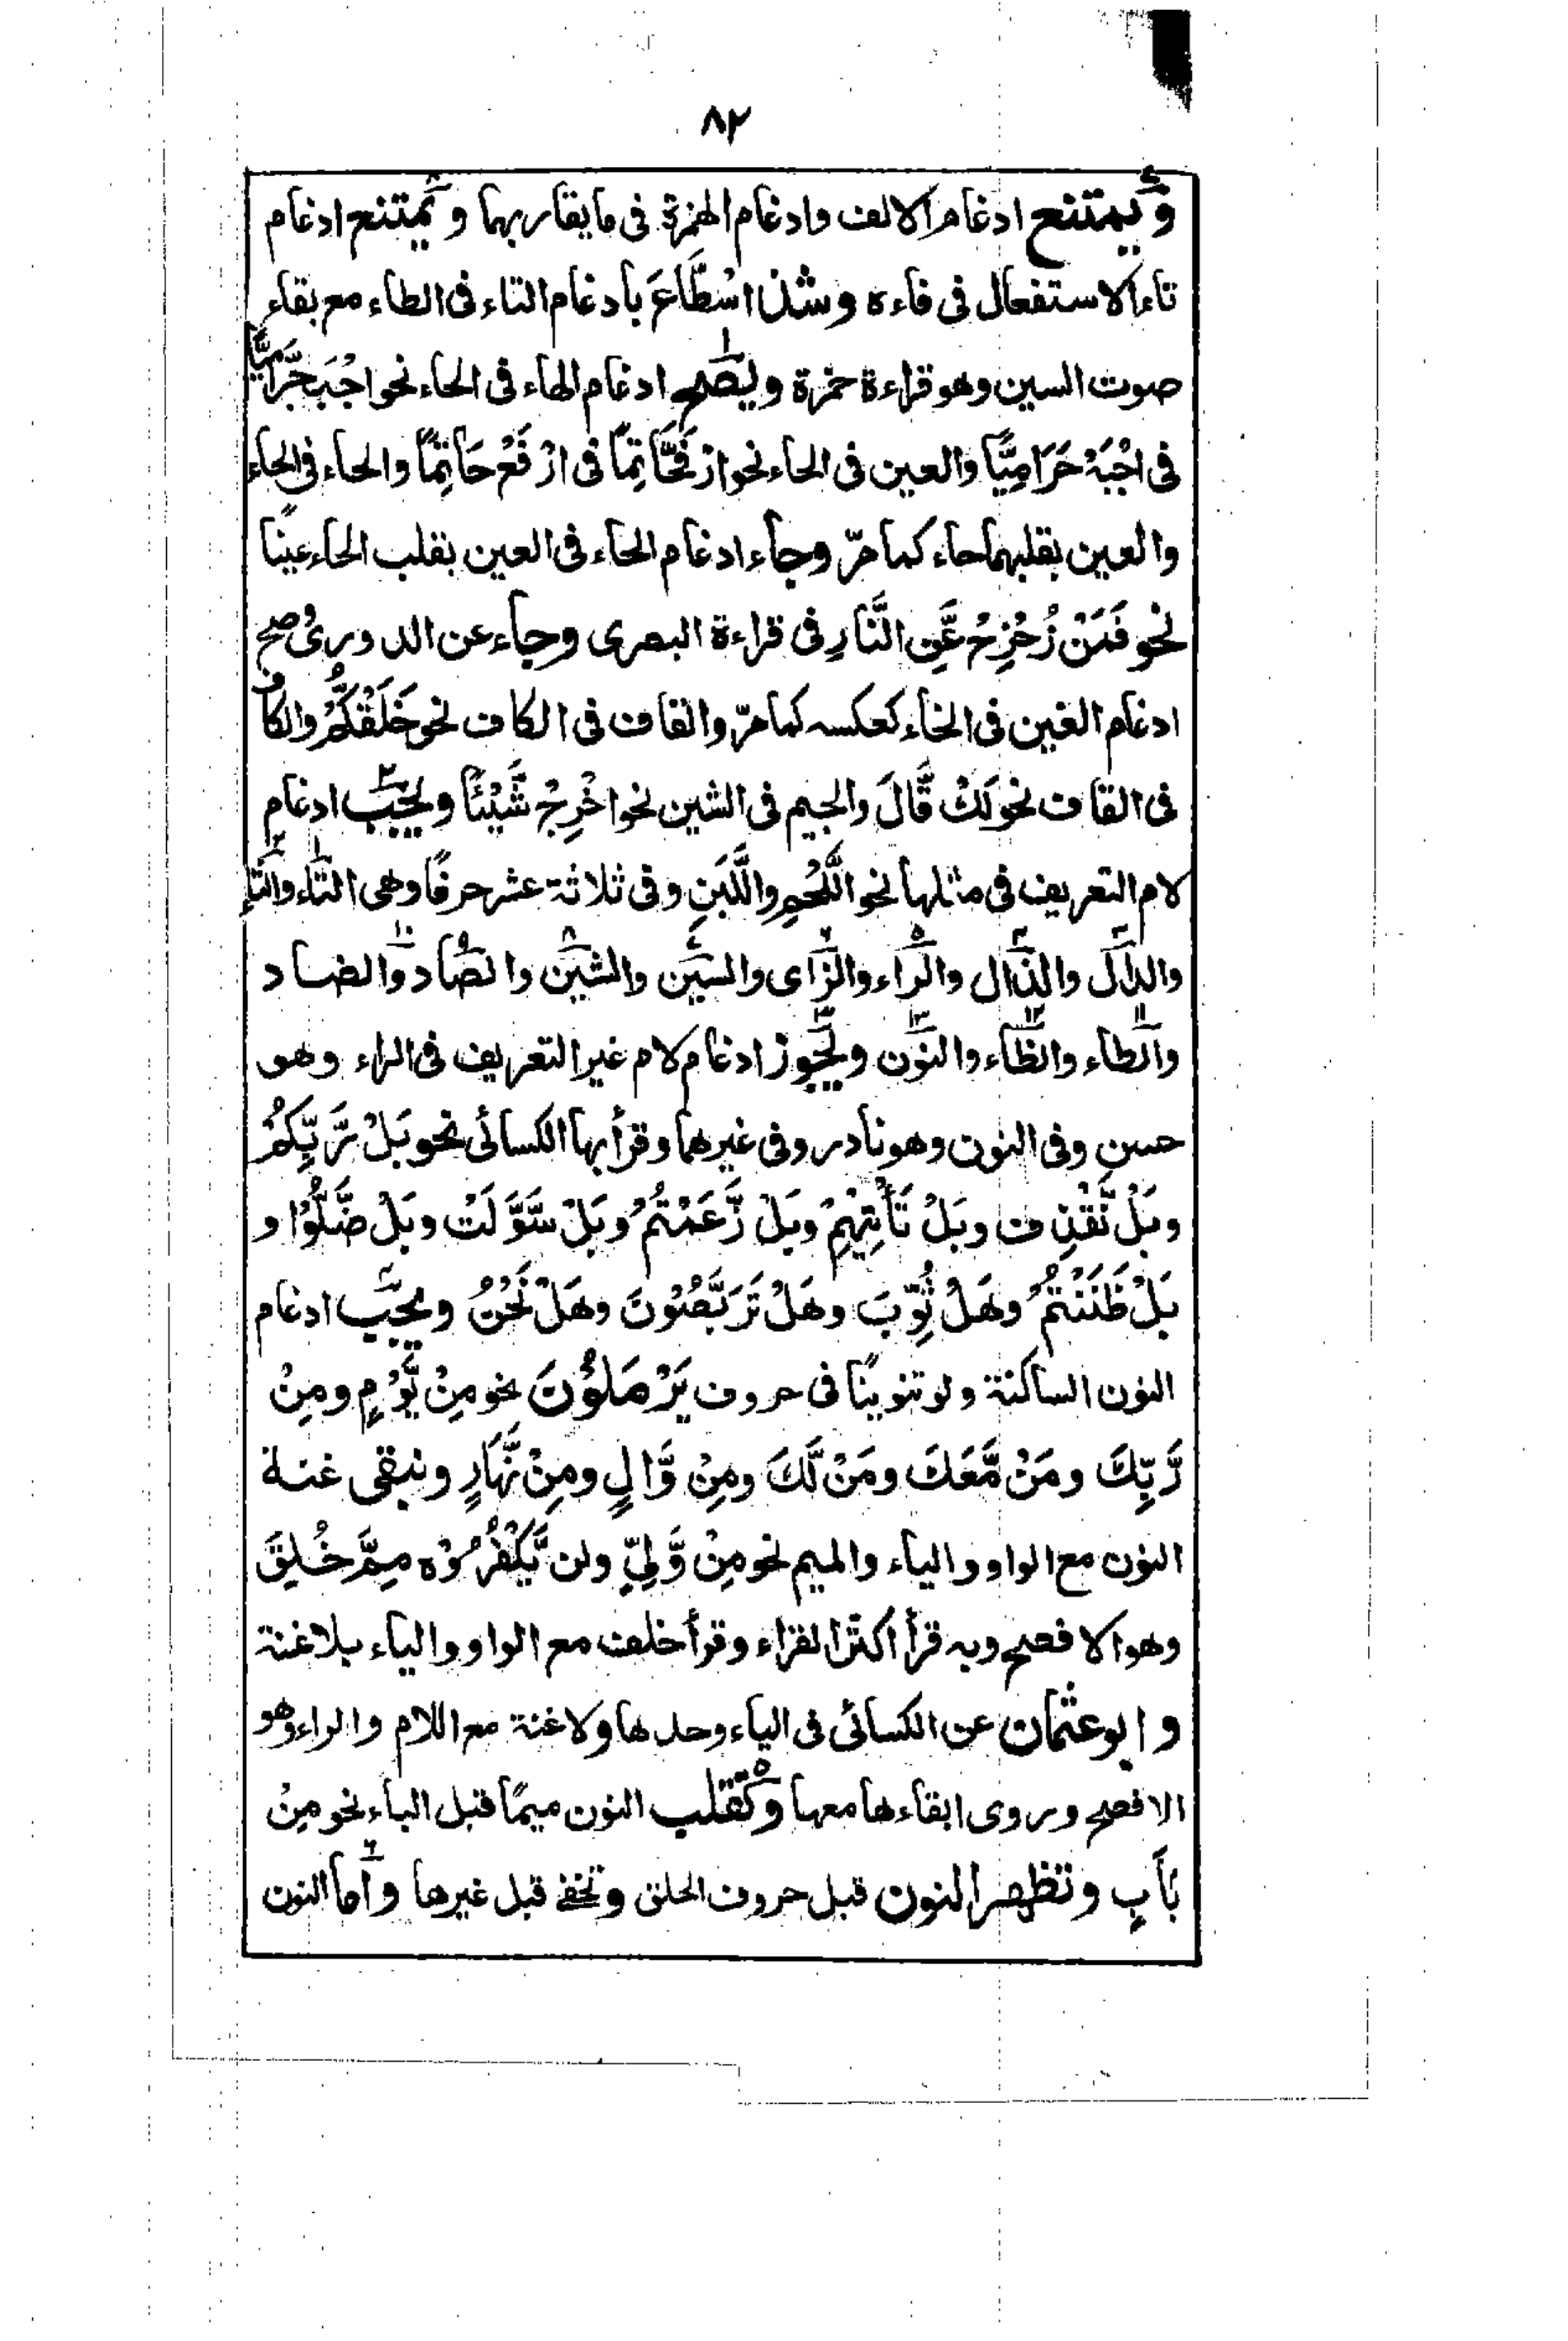 ٨٢
ويمتنع ادغام الالف وادغام الهمزة فى ما يقاربهما ويمتنع ادغام
تاء الاستفعال فى فاءه وشذ اسْطَّاعَ بادغام التاء فى الطاء مع بقاء
صوت السين وهو قراءة حمزة ويصح ادغام الهاء فى الحاء نحو اجْبَحَّرَامِيًّا
فى اجْبَهْ حَرَامِيًّا والعين فى الحاء نحو ارْفَحَّاتِمًا فى ارْفَعْ حَاتِمًا والحاء فى الهاء
والعين بقلبهما حاء كما مرّ وجاء ادغام الحاء فى العين بقلب الحاء عينًا
نحو فَمَنْ زُحْزِحْ عَّنِ النَّارِ فى قراءة البصرى وجاء عن الدورى صح
ادغام الغين فى الخاء كعكسه كما مرّ والقاف فى الكاف نحو خَلَقْكُّمْ والكاف
فى القاف نحو لَكْ قَّالَ والجيم فى الشين نحو اخْرِجْ شَّيْئًا ويجب ادغام
لام التعريف فى مثلها نحو اللَّحْمِ واللَّبَنِ وفى ثلاثة عشر حرفًا وهى التاء والثاء
والدال والذال والراء والزاى والسين والشين والصاد والضاد
والطاء والظاء والنون ويجوز ادغام لام غير التعريف فى الراء وهو
حسن وفى النون وهو نادر وفى غيرهما وقرأ بها الكسائى نحو بَلْ رَّبُّكُمْ
وبَلْ نَّقْذِف وبَلْ تَّأْتِيْهِمْ وبَلْ زَّعَمْتُمْ وبَلْ سَّوَّلَتْ وبَلْ ضَّلُّوْا و
بَلْ ظَنَنْتُمْ وهَلْ ثُّوِّبَ وهَلْ تَرَبَّصُوْنَ وهَلْ نَّحْنُ ويجب ادغام
النون الساكنة ولو تنوينًا فى حروف يَرْمَلُوْنَ نحو مِنْ يَّوْمٍ ومِنْ
رَّبِّكَ ومَنْ مَّعَكَ ومَنْ لَّكَ ومِنْ وَّالٍ ومِنْ نَّهَارٍ وتبقى غنة
النون مع الواو والياء والميم نحو مِنْ وَّلِيٍّ ولن يَّكْفُرُوْه مِمَّ خُلِقَ
وهو الافصح وبه قرأ اكثر القراء وقرأ خلف مع الواو والياء بلا غنة
وابو عثمان عن الكسائى فى الياء وحدها ولا غنة مع اللام والراء وهو
الافصح وروى ابقاءها معها وتقلب النون ميمًا قبل الباء نحو مِنْ
بَابٍ وتظهر النون قبل حروف الحلق وتخفى قبل غيرها واما النون